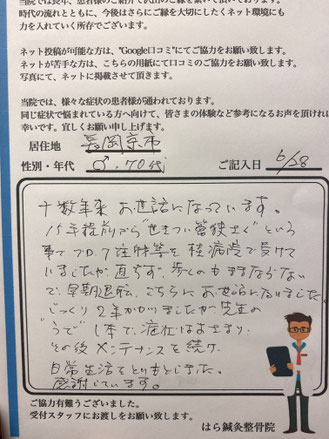 当院では長年、患者様のご紹介で沢山のご縁を繋いで頂いております。
時代の流れとともに、今後はさらにご縁を大切にしたくネット環境にも
力を入れていく所存でございます。
ネット投稿が可能な方は、"Google口コミ"にてご協力をお願い致します。
ネットが苦手な方は、こちらの用紙にて口コミのご協力をお願い致します。
写真にて、ネットに掲載させて頂きます。
当院では、様々な症状の患者様が通われております。
同じ症状で悩まれている方へ向けて、皆さまの体験など参考になるお声を頂ければ
幸いです。宜しくお願い申し上げます。
居住地 長岡京市
性別・年代 ♂.70代 ご記入日 6/28
十数年来 お世話になっています。
15年程前から"せきつい管狭さく"という
事でブロック注射等を 病院で受けて
いましたが 直らず、歩くのもままならない
で、早期退職、こちらにお世話になりました。
じっくり 2年かかりましたが 先生の
"うで"1本で、症状はおさまり
その後 メンテナンスを続け、
日常生活をとりもどしました。
感謝しています。
ご協力有難うございました。
受付スタッフにお渡しをお願い致します。
はら鍼灸整骨院